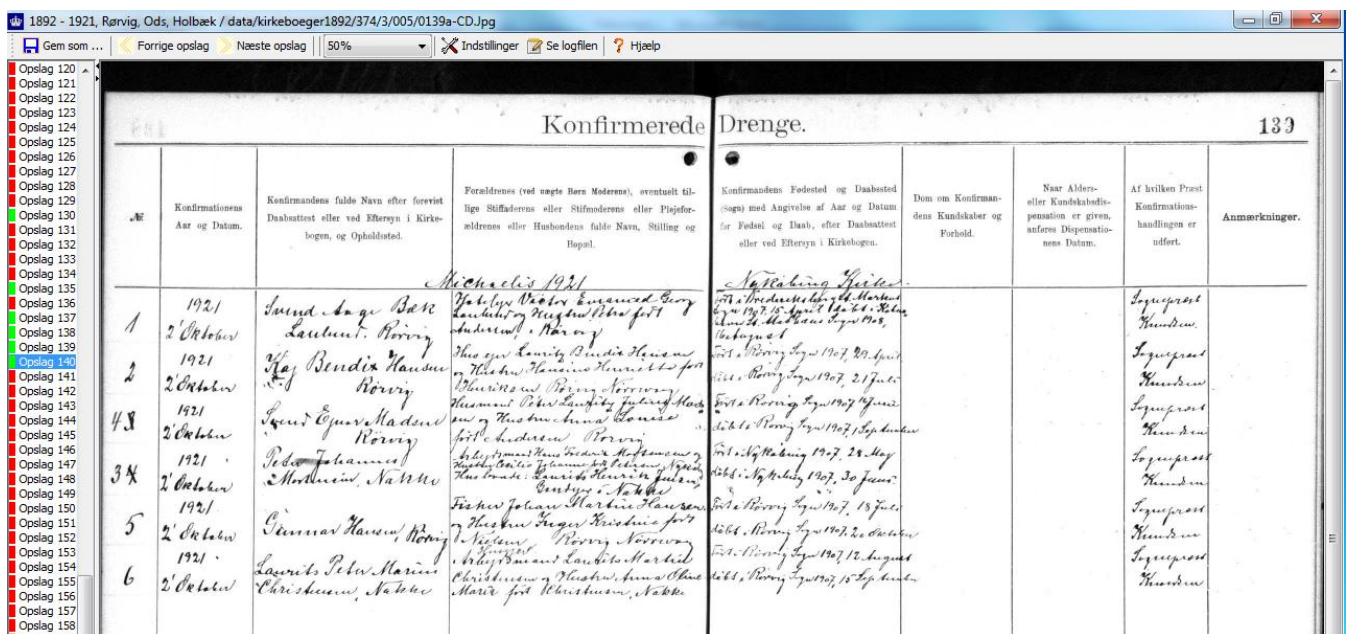 1892 - 1921, Rørvig, Ods, Holbæk / data/kirkeboeger1892/374/3/005/0139a-CD.Jpg
Gem som ... Forrige opslag Næste opslag 50% Indstillinger Se logfilen Hjælp
Opslag 120
Opslag 121
Opslag 122
Opslag 123
Opslag 124
Opslag 125
Opslag 126
Opslag 127
Opslag 128
Opslag 129
Opslag 130
Opslag 131
Opslag 132
Opslag 133
Opslag 134
Opslag 135
Opslag 136
Opslag 137
Opslag 138
Opslag 139
Opslag 140
Opslag 141
Opslag 142
Opslag 143
Opslag 144
Opslag 145
Opslag 146
Opslag 147
Opslag 148
Opslag 149
Opslag 150
Opslag 151
Opslag 152
Opslag 153
Opslag 154
Opslag 155
Opslag 156
Opslag 157
Opslag 158
Konfirmerede Drenge.
139
№
Konfirmationens
Aar og Datum.
Konfirmandens fulde Navn efter forevist
Daabsattest eller ved Eftersyn i Kirke-
bogen, og Opholdssted.
Forældrenes (ved uægte Børn Moderens), eventuelt til-
lige Stiffaderens eller Stifmoderens eller Plejefor-
ældrenes eller Husbondens fulde Navn, Stilling og
Bopæl.
Konfirmandens Fødested og Daabssted
(Sogn) med Angivelse af Aar og Datum
for Fødsel og Daab, efter Daabsattest
eller ved Eftersyn i Kirkebogen.
Dom om Konfirman-
dens Kundskaber og
Forhold.
Naar Alders-
eller Kundskabsdis-
pensation er given,
anføres Dispensatio-
nens Datum.
Af hvilken Præst
Konfirmations-
handlingen er
udført.
Anmærkninger.
Michaelis 1921
Nykøbing Kirke
1
1921
2' Oktober
Svend Aage Bæk
Laulund. Rørvig
Victor Emanuel Georg
Laulund og Hustru Petra født
Andersen, Rørvig
1907, 15 April døbt i
Sogn 1908,
Sognepræst
Knudsen.
2
1921
2' Oktober
Kaj Bendix Hansen
Rørvig
Lauritz Bendix Hansen
og Hustru Hansine Henriette født
Henriksen Rørvig
Født i Rørvig Sogn 1907, 29 April
døbt i Rørvig Sogn 1907, 21 Juli
Sognepræst
Knudsen
4
1921
2' Oktober
Svend Ejnar Madsen
Rørvig
Husmand Peter Lauritz Julius Mads-
en og Hustru Anna Louise
født Andersen Rørvig
Født i Rørvig Sogn 1907 Juni
døbt i Rørvig Sogn 1907, 1 September
Sognepræst
Knudsen
3
1921
2' Oktober
Peter Johannes
Mortensen, Nakke
Arbejdsmand Hans Frederik Mortensen og
Hustru Cecilie Johanne født Petersen, Nykøb.
Husbonde: Laurits Henrik Jensen,
i Nakke
Født i Nykøbing 1907, 28 Maj
døbt i Nykøbing 1907, 30 Juni
Sognepræst
Knudsen
5
1921
2' Oktober
Gunnar Hansen, Rørvig
Fisker Johan Martin Hansen
og Hustru Inger Kristine født
Nielsen Rørvig
Født i Rørvig Sogn 1907, 18 Juli
døbt i Rørvig Sogn 1907, 20 Oktober
Sognepræst
Knudsen
6
1921
2' Oktober
Laurits Peter Marius
Christensen, Nakke
Laurits Martin
Christensen og Hustru Anna Oline
Marie født Christensen, Nakke
Født i Rørvig Sogn 1907, 12 August
døbt i Rørvig Sogn 1907, 15 September
Sognepræst
Knudsen